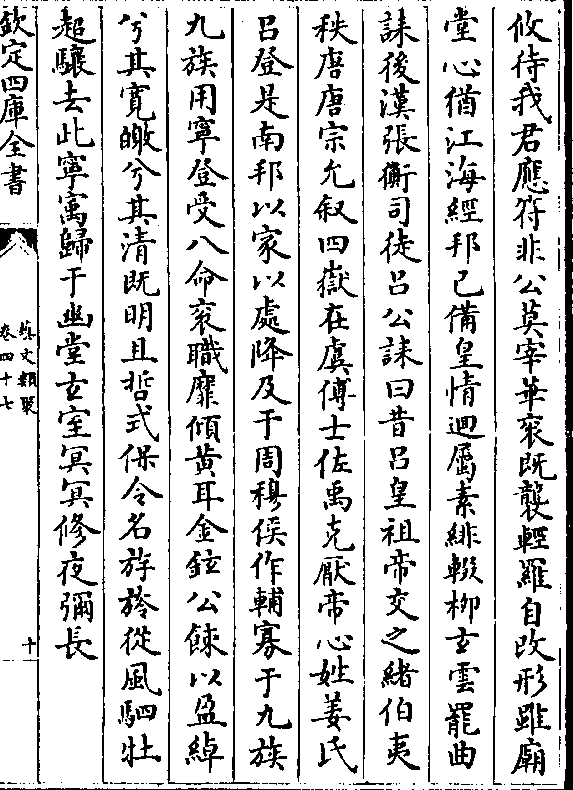 攸待我君應符非公莫宰華衮既襲輕羅自改形雖廟
堂心猶江海經邦已備皇情迴屬素緋輟柳玄雲罷曲
誄後漢張衡司徒吕公誄曰昔吕皇祖帝交之緒伯夷
秩唐唐宗允叙四嶽在虞傅士佐禹克厭帝心姓姜氏
吕登是南邦以家以處降及于周穆侯作輔寡于九族
九族用寧登受八命衮職靡傾黄耳金鉉公餗以盈綽
兮其寛皦兮其清既明且哲式保令名斿旍從風駟牡
超驤去此寧寓歸于幽堂玄室冥冥修夜彌長
欽定四庫全書
藝文類聚
卷四十七
十